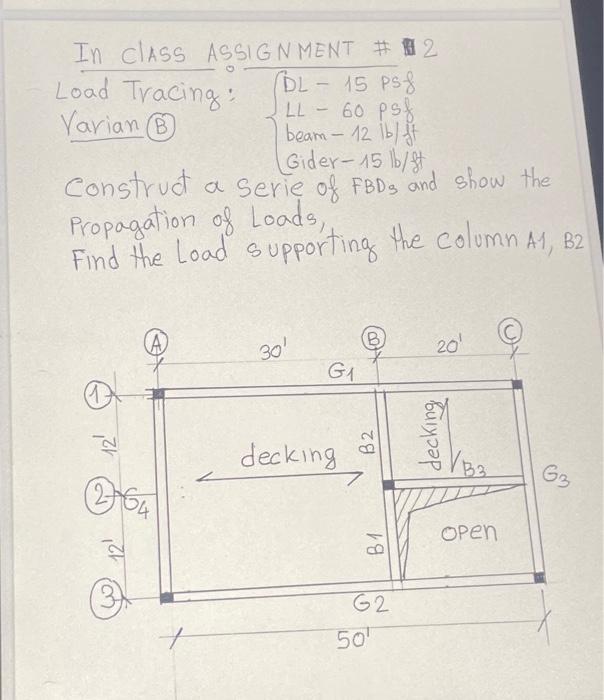 In CLASS ASSIGNMENT # 2
Load Tracing:
Varian B
DL - 15 psf
LL - 60 psf
beam - 12 lb/ft
Gider - 15 lb/ft
Construct a serie of FBDs and show the
Propagation of Loads,
Find the Load supporting the column A1, B2
A
30'
B
20'
C
G1
1
12'
decking
B2
decking
B3
G3
2
G4
12'
B1
OPEN
3
G2
50'